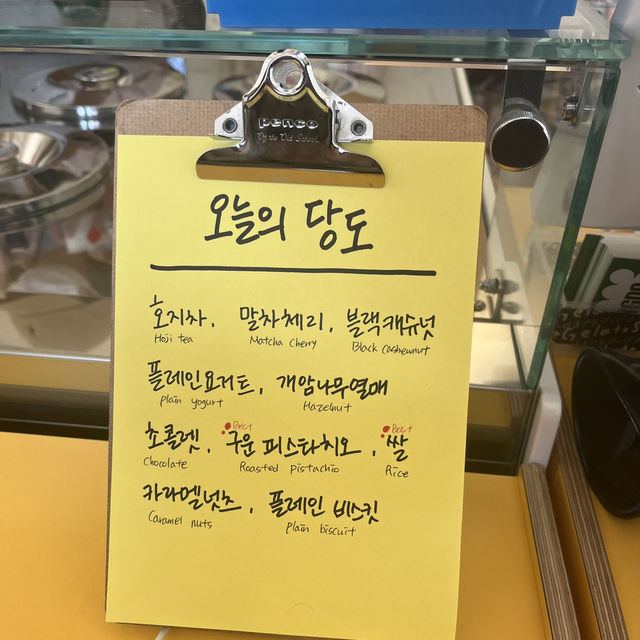 penco
By the Old School
오늘의 당도
호지차, 말차체리, 블랙캐슈넛
Hoji tea Matcha Cherry Black Cashewnut
플레인요거트, 개암나무열매
plain yogurt Hazelnut
Best Best
쵸콜렛, 구운 피스타치오, 쌀
Chocolate Roasted pistachio Rice
카라멜넛츠, 플레인 비스킷
Caramel nuts Plain biscuit